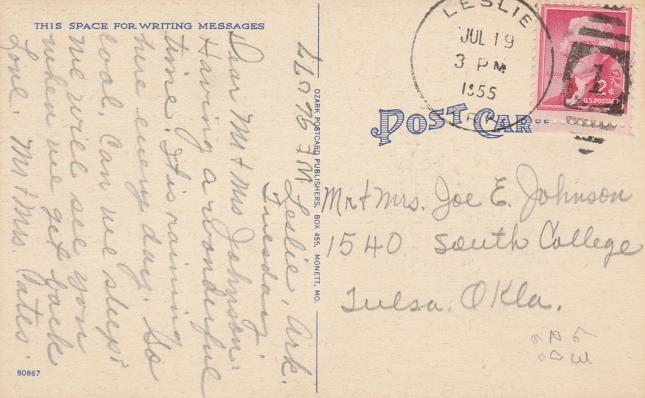 THIS SPACE FOR WRITING MESSAGES
Leslie, Ark.
Tuesday
Dear Mr & Mrs Johnson:
Having a wonderful
time. It is raining
here every day. So
cool. Can we sleep!
We will see you
when we get back
Love. Mr & Mrs. Yates.
OZARK POSTCARD PUBLISHERS, BOX 455, MONETT, MO.
80867
LESLIE
JUL 19
3 PM
1955
ARK.
2¢
U.S. POSTAGE
POST CARD
Mr & Mrs. Joe E. Johnson
1540 South College
Tulsa, Okla.